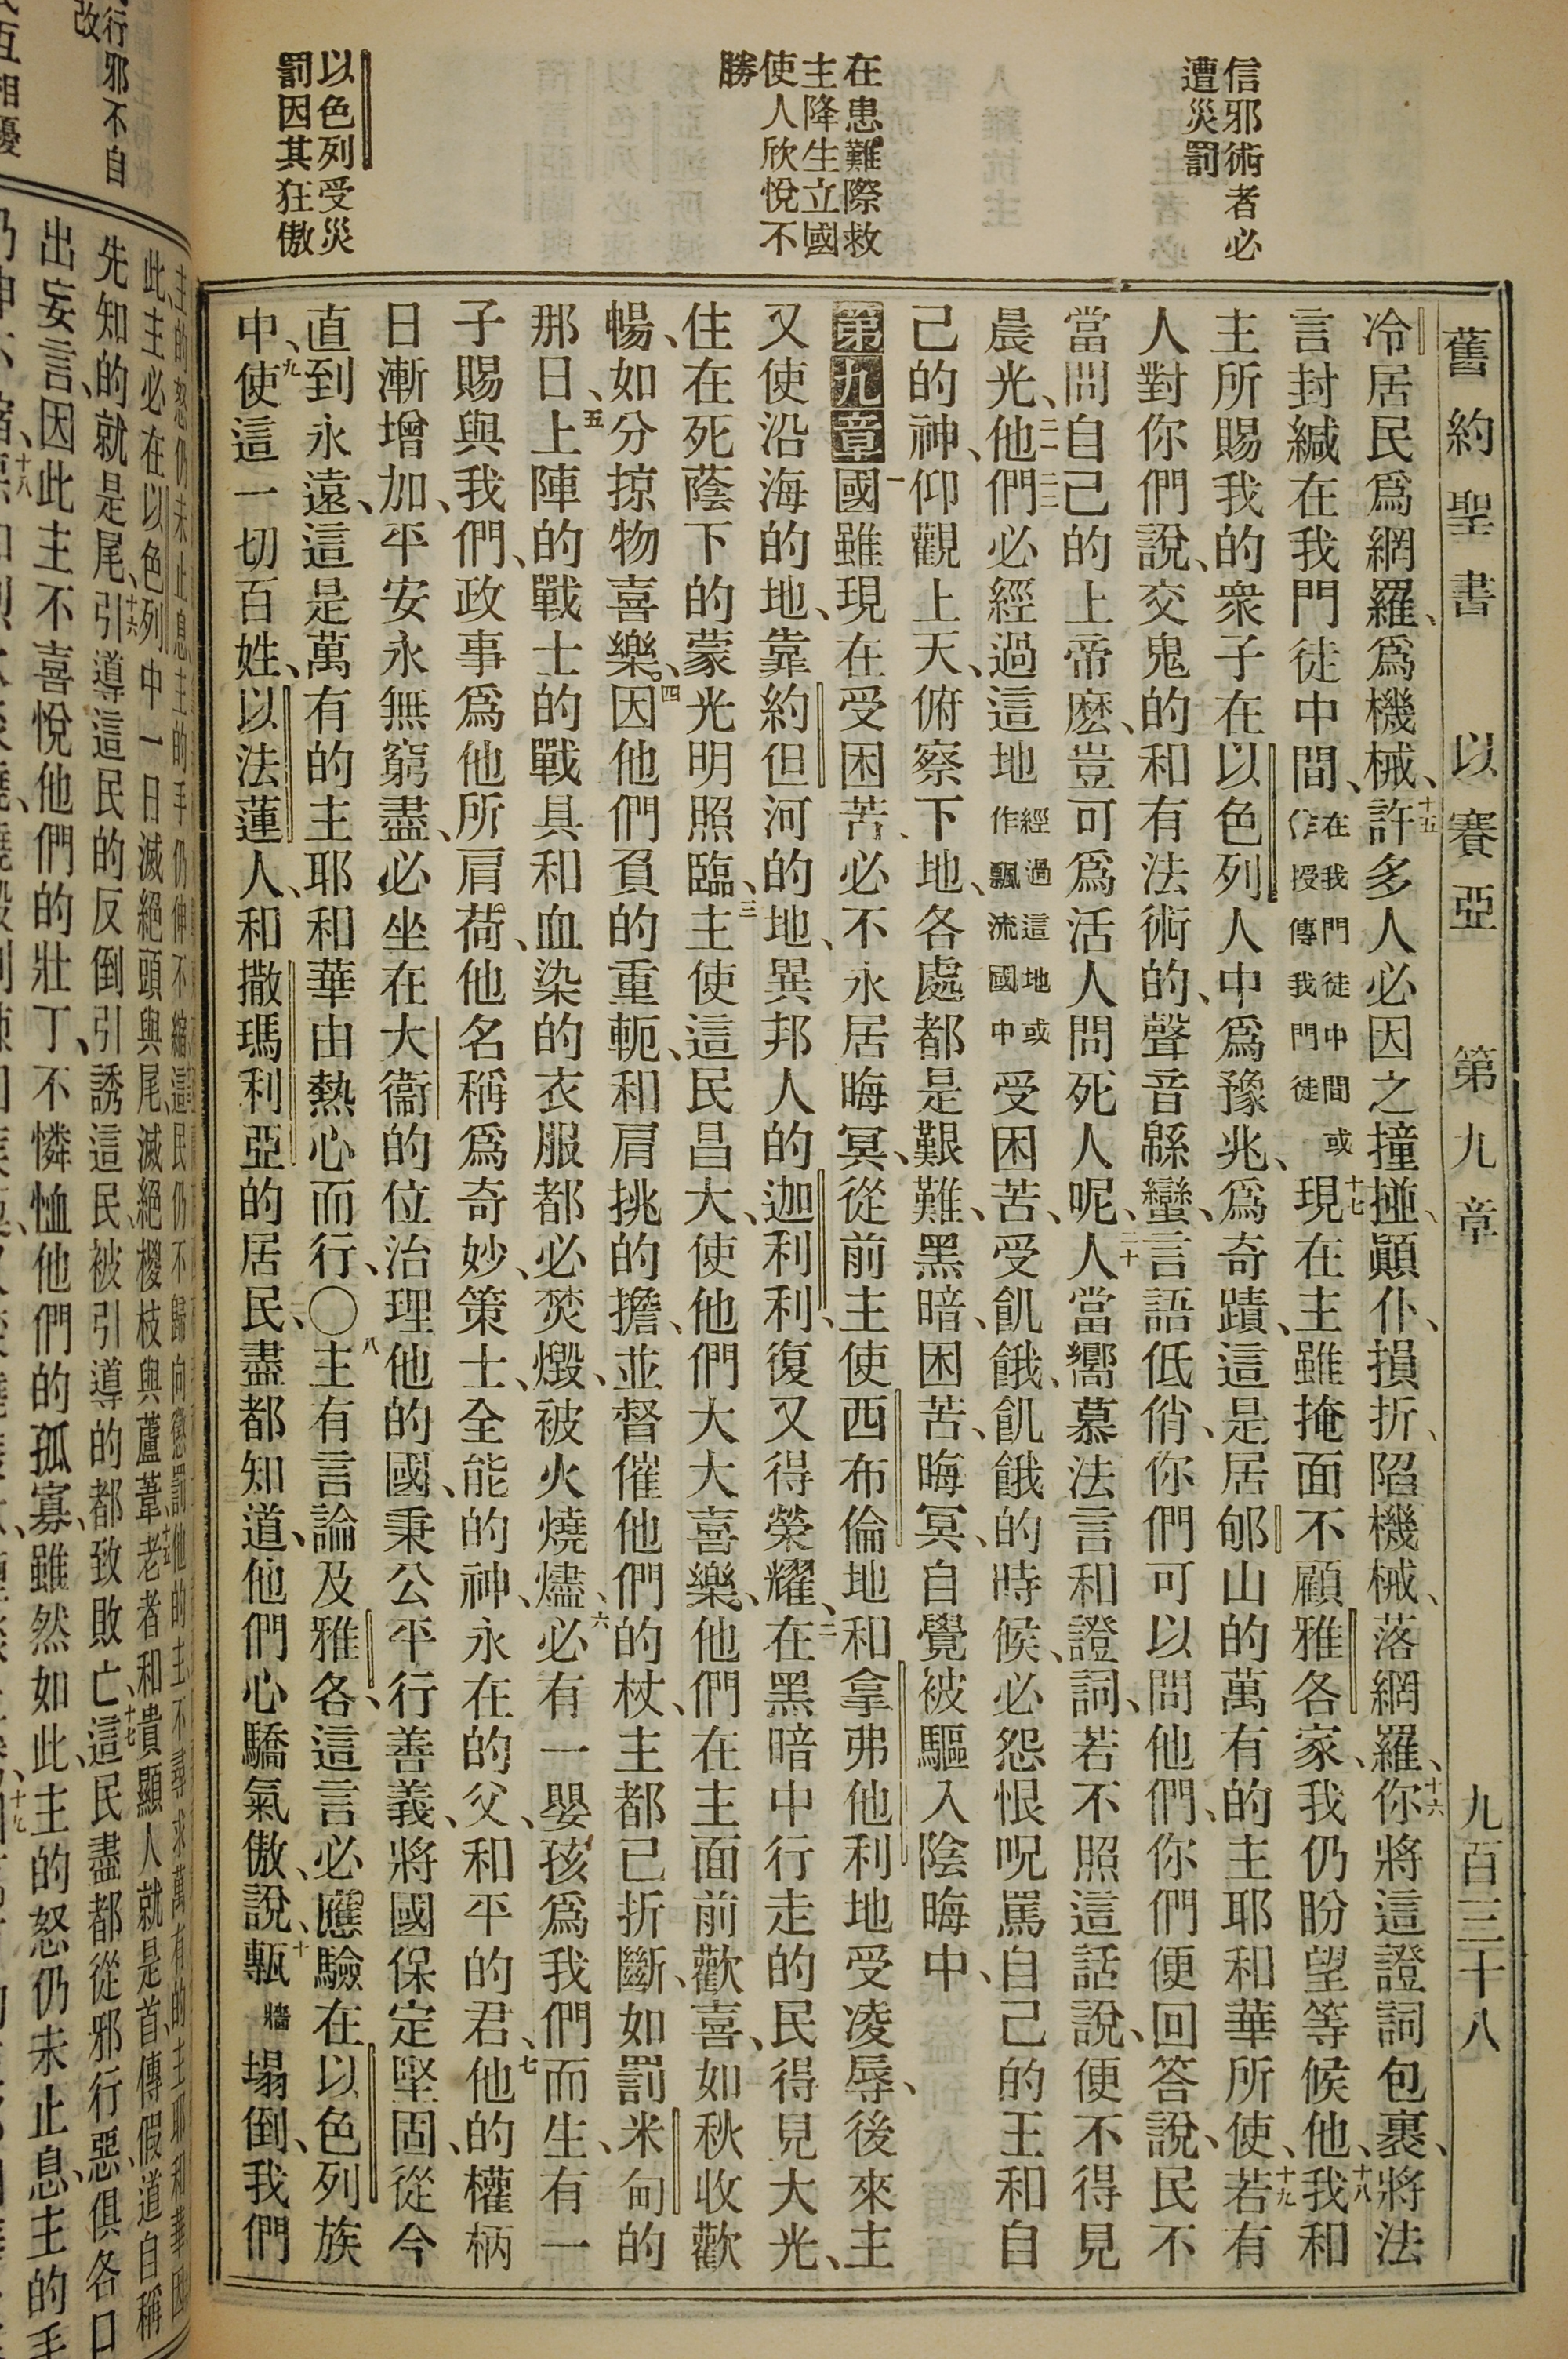 舊約聖書 以賽亞 第九章 九百三十八
信邪術者必
遭災罰
在患難際救
主降生立國
使人欣悅不
勝
以色列受災
罰因其狂傲
冷居民爲網羅、爲機械、十五許多人必因之撞㨻、顚仆、損折、陷機械、落網羅、十六你將這證詞包裹、將法
言封緘在我門徒中間、在我門徒中間或作授傳我門徒十七現在主雖掩面不顧雅各家、我仍盼望等候他、十八我和
主所賜我的衆子在以色列人中爲豫兆、爲奇蹟、這是居郇山的萬有的主耶和華所使、十九若有
人對你們說、交鬼的和有法術的、聲音緜蠻、言語低俏、你們可以問他們、你們便回答說、民不
當問自己的上帝麽、豈可爲活人問死人呢、二十人當嚮慕法言和證詞、若不照這話說、便不得見
晨光、二一二二他們必經過這地經過這地或作飄流國中受困苦、受飢餓、飢餓的時候、必怨恨呪罵自己的王和自
己的神、仰觀上天、俯察下地、各處都是艱難、黑暗、困苦、晦冥、自覺被驅入陰晦中、
第九章 一國雖現在受困苦、必不永居晦冥、從前主使西布倫地和拿弗他利地受凌辱、後來主
又使沿海的地、靠約但河的地、異邦人的迦利利、復又得榮耀、二在黑暗中行走的民得見大光、
住在死蔭下的蒙光明照臨、三主使這民昌大、使他們大大喜樂、他們在主面前歡喜、如秋收歡
暢、如分掠物喜樂、四因他們負的重軛、和肩挑的擔、並督催他們的杖、主都已折斷、如罰米甸的
那日、五上陣的戰士的戰具和血染的衣服都必焚燬、被火燒燼、六必有一嬰孩爲我們而生、有一
子賜與我們、政事爲他所肩荷、他名稱爲奇妙、策士、全能的神、永在的父、和平的君、七他的權柄
日漸增加、平安永無窮盡、必坐在大衞的位治理他的國、秉公平行善義、將國保定堅固、從今
直到永遠、這是萬有的主耶和華由熱心而行、〇八主有言論及雅各、這言必應驗在以色列族
中、九使這一切百姓、以法蓮人、和撒瑪利亞的居民、盡都知道、他們心驕氣傲、說、十甎牆塌倒、我們
行邪不自
改
主的怒仍未止息主的手仍伸不縮這民仍不歸向懲罰他的主不尋求萬有的主耶和華因
此、主必在以色列中一日滅絕頭與尾、滅絕椶枝與蘆葦、十五老者和貴顯人就是首、傳假道自稱
先知的就是尾、十六引導這民的反倒引誘這民、被引導的都致敗亡、十七這民盡都從邪行惡、俱各口
出妄言、因此主不喜悅他們的壯丁、不憐恤他們的孤寡、雖然如此、主的怒仍未止息、主的手